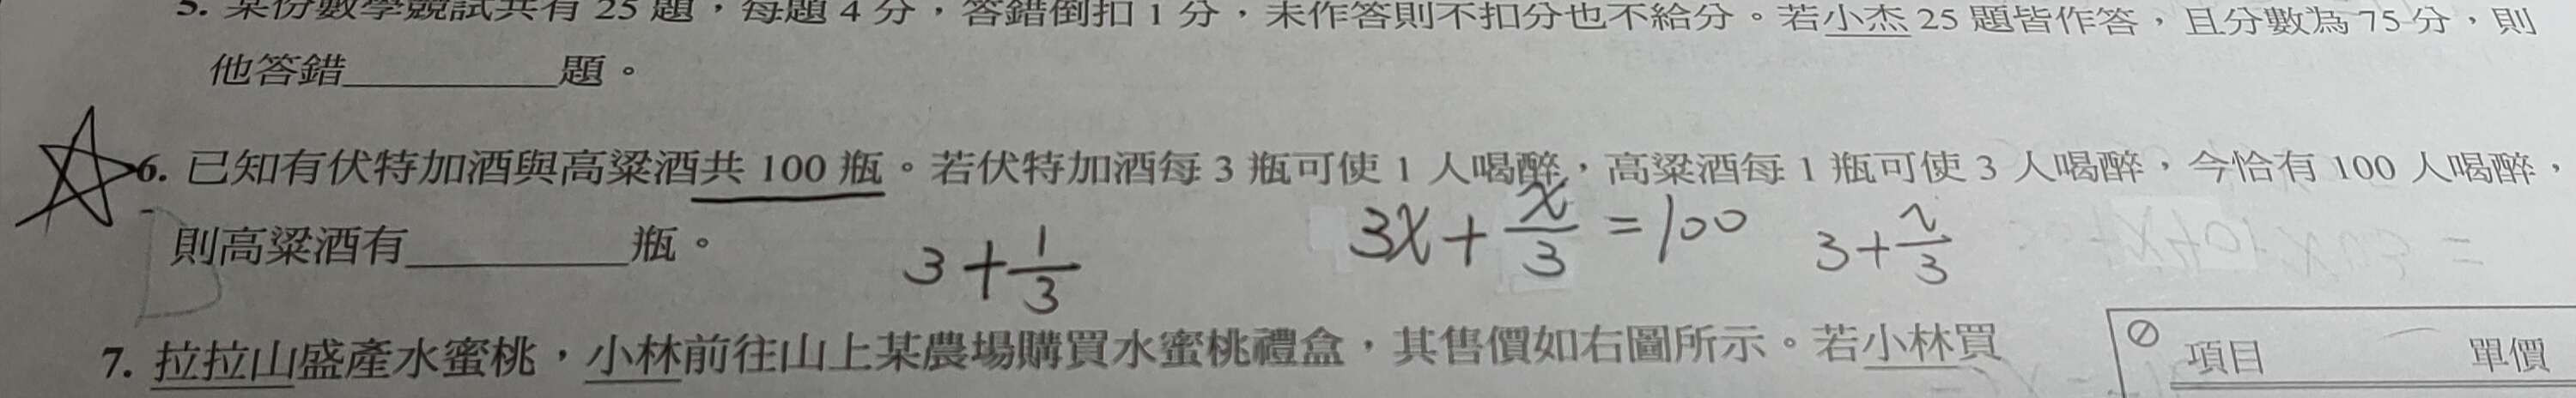 5. 某份數學競試共有 25 題，每題 4 分，答錯倒扣 1 分，未作答則不扣分也不給分。若小杰 25 題皆作答，且分數為 75 分，則
他答錯________題。
6. 已知有伏特加酒與高粱酒共 100 瓶。若伏特加酒每 3 瓶可使 1 人喝醉，高粱酒每 1 瓶可使 3 人喝醉，今恰有 100 人喝醉，
則高粱酒有________瓶。
3+1/3
3x+x/3=100
7. 拉拉山盛產水蜜桃，小林前往山上某農場購買水蜜桃禮盒，其售價如右圖所示。若小林買
項目 單價